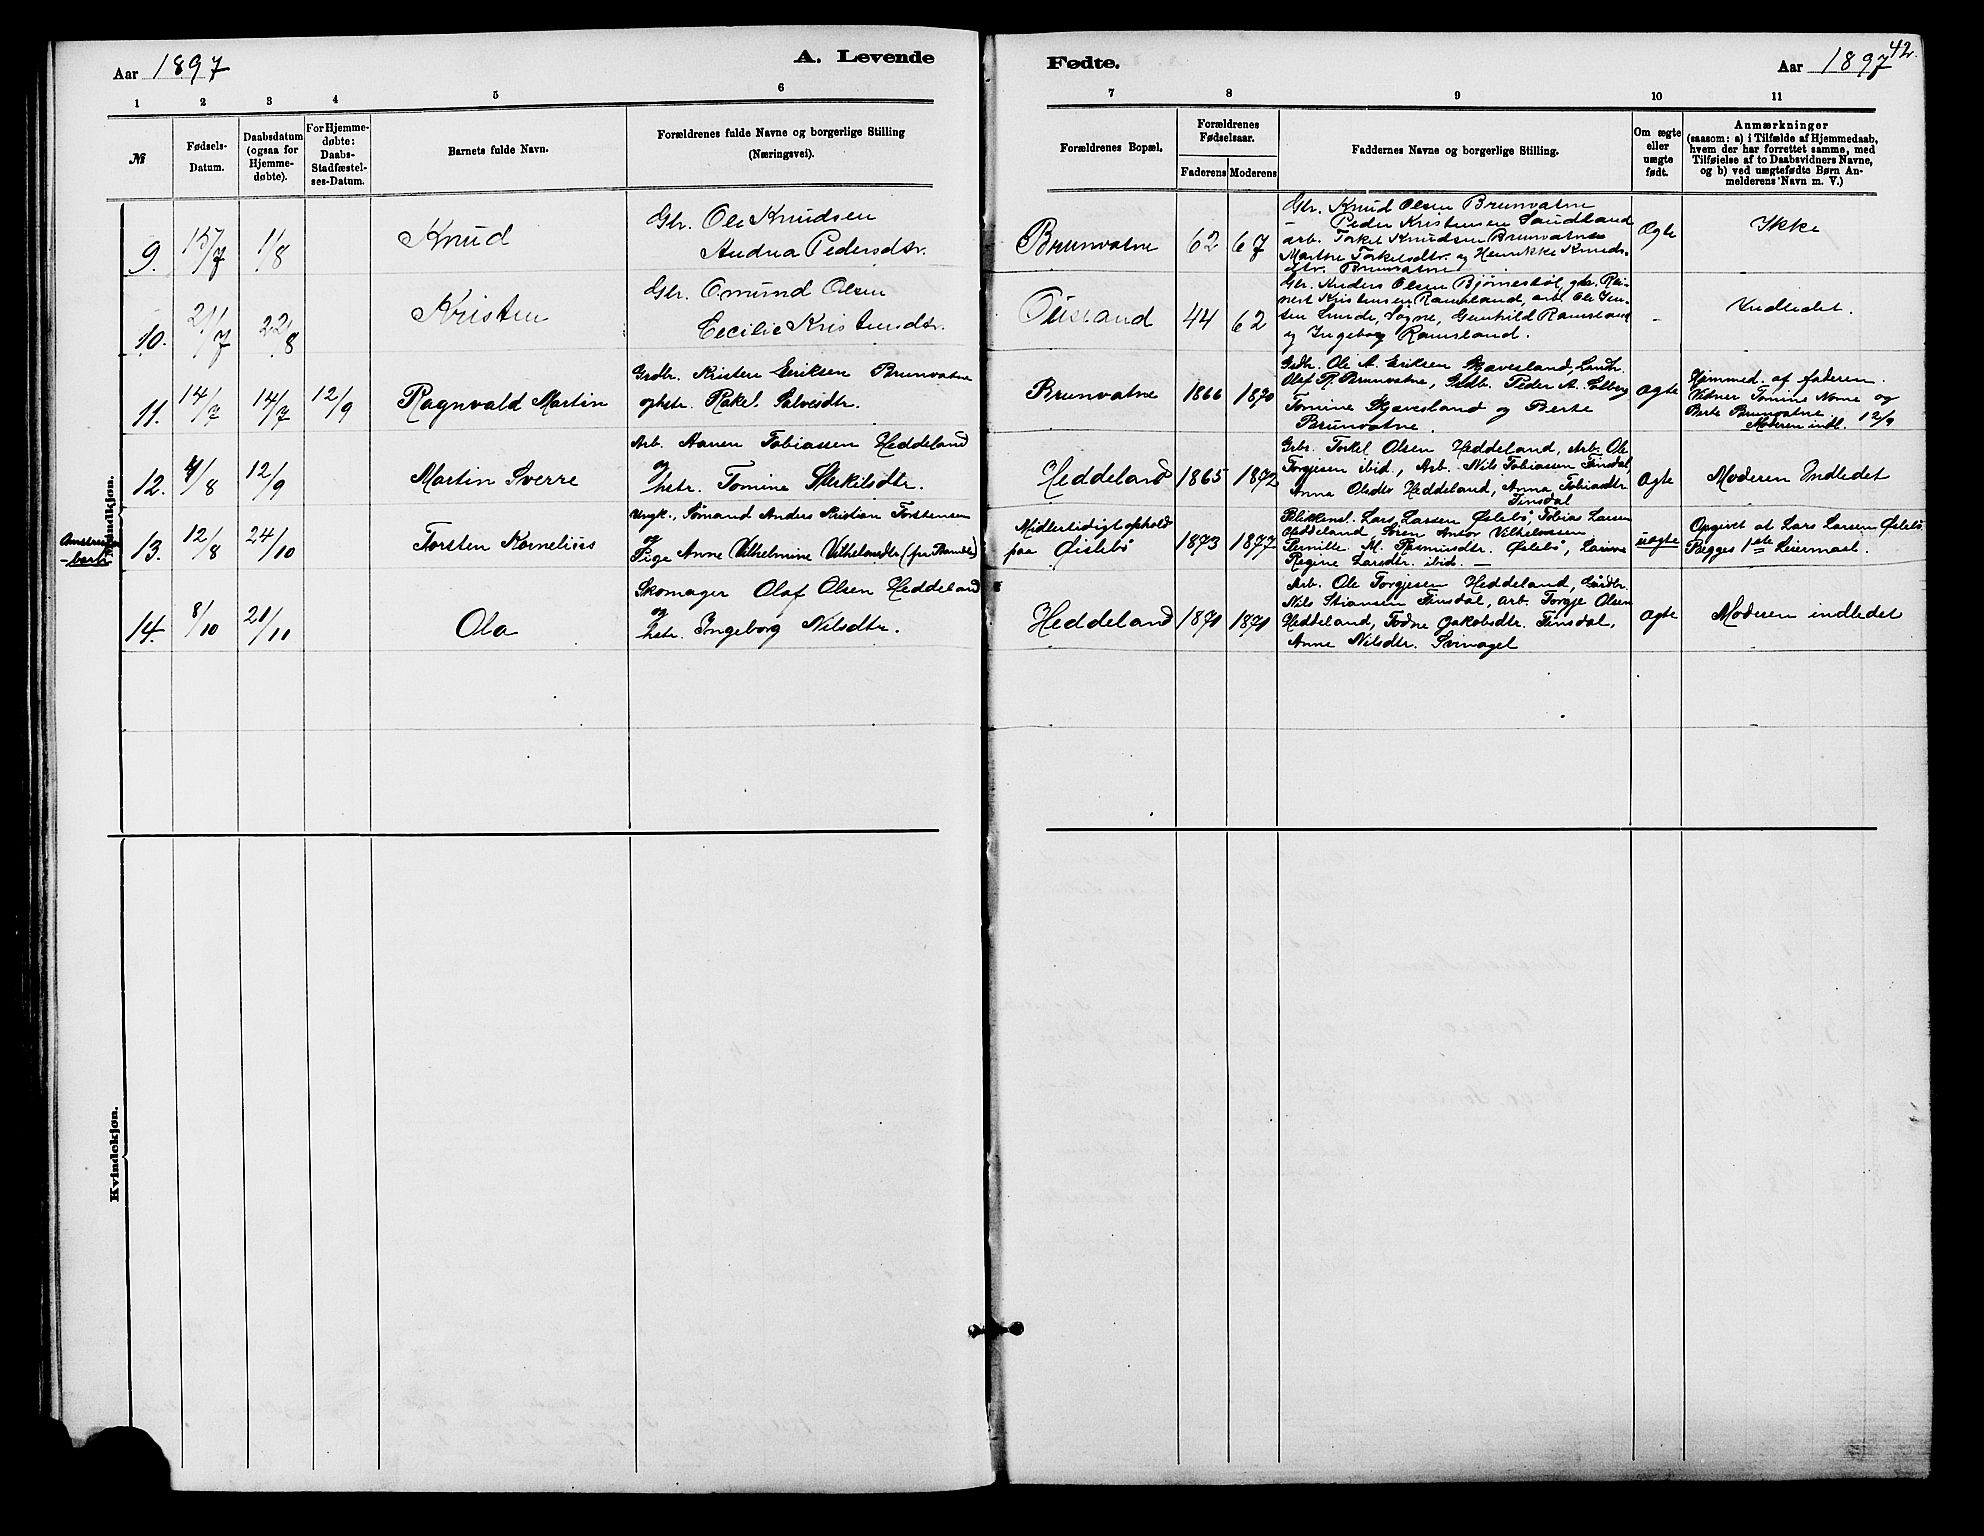 Aar 1897
A. Levende
Fødte.
Aar 1897
42.
1 2 3 4 5 6 7 8 9 10 11
№
Fødsels-
Datum.
Daabsdatum
(ogsaa for
Hjemme-
døbte).
For Hjemme-
døbte:
Daabs-
Stadfæstel-
ses-Datum.
Barnets fulde Navn.
Forældrenes fulde Navne og borgerlige Stilling
(Næringsvei).
Forældrenes Bopæl.
Forældrenes
Fødselsaar.
Faderens Moderens
Faddernes Navne og borgerlige Stilling.
Om ægte
eller
uægte
født.
Anmærkninger
(saasom: a) i Tilfælde af Hjemmedaab,
hvem der har forrettet samme, med
Tilføielse af to Daabsvidners Navne,
og b) ved uægtefødte Børn An-
melderens Navn m. V.)
Mandkjøn.
9. 15/7 1/8
Knud
Gbr. Ole Knudsen
Andrea Pedersdtr.
Brunvatne 62 67
Gbr. Knud Olsen Brunvatne
— Peder Kristensen Saudland
arb. Torkel Knudsen Brunvatne
Marthe Torkelsdtr. og Henrikke Knuds-
dtr. Brunvatne
Ægte
Ikke
10. 21/7 22/8
Kristen
Gbr. Omund Olsen
Cecilie Kristensdtr.
Øiesland 44 62
Gbr. Anders Olsen Bjørnestøl, gbr. Rei-
nert Kristensen Ramsland, arb. Ole Jen-
sen Lunde, Søgne, Gunhild Ramsland
og Ingeborg Ramsland.
—
Indledet.
11. 14/7 14/7 12/9
Ragnvald Martin
Grdbr. Kristen Eriksen Brunvatne
og hstr. Rakel Salvesdtr.
Brunvatne 1866 1870
Grdbr. Ole A. Eriksen Skjævesland, Landh.
Olaf P. Brunvatne, Grdbr. Peder A. Solberg
Tomine Skjævesland og Berte
Brunvatne.
Ægte
Hjemmed. af faderen.
Vidner Tomine Nome og
Berte Brunvatne. 12/9
Moderen indl.
12. 4/8 12/9
Martin Sverre
Arb. Aanen Tobiassen Heddeland
og
hstr. Tomine Sterkelsdtr.
Heddeland 1865 1872
Grbr. Torkel Olsen Heddeland, Arb. Ole
Torgjesen ibid., Arb. Nils Tobiassen Finsdal,
Anna Olsdtr Heddeland, Anna Tobiasdtr
Finsdal
Ægte
Moderen Indledet
-barn
13. 12/8 24/10
Torsten Kornelius
Ungk., Sømand Anders Kristian Torstensen
og
Pige Anne Vilhelmine Vilhelmsdtr (fra Mandal)
Midlertidigt ophold
paa Øislebø
1873 1877
Blikkensl. Lars Larsen Øslebø, Tobias Larsen
Heddeland, Søren Anton Vilhelmsen
Pernille M. Rasmusdtr. Øslebø, Larine
Regine Larsdtr. ibid. —
uægte
Opgivet at Lars Larsen Øslebø
Begges 1ste Leiermaal.
14. 8/10 21/11
Ola
Skomager Olaf Olsen Heddeland
og
hstr. Ingeborg Nilsdtr.
Heddeland 1870 1870
Arb. Ole Torgjesen Heddeland, Gårdbr.
Nils Stiansen Finsdal, arb. Torgje Olsen
Heddeland, Todne Jakobsdtr. Finsdal,
Anne Nilsdtr. Svinagel
Ægte
Moderen indledet
Kvindekjøn.